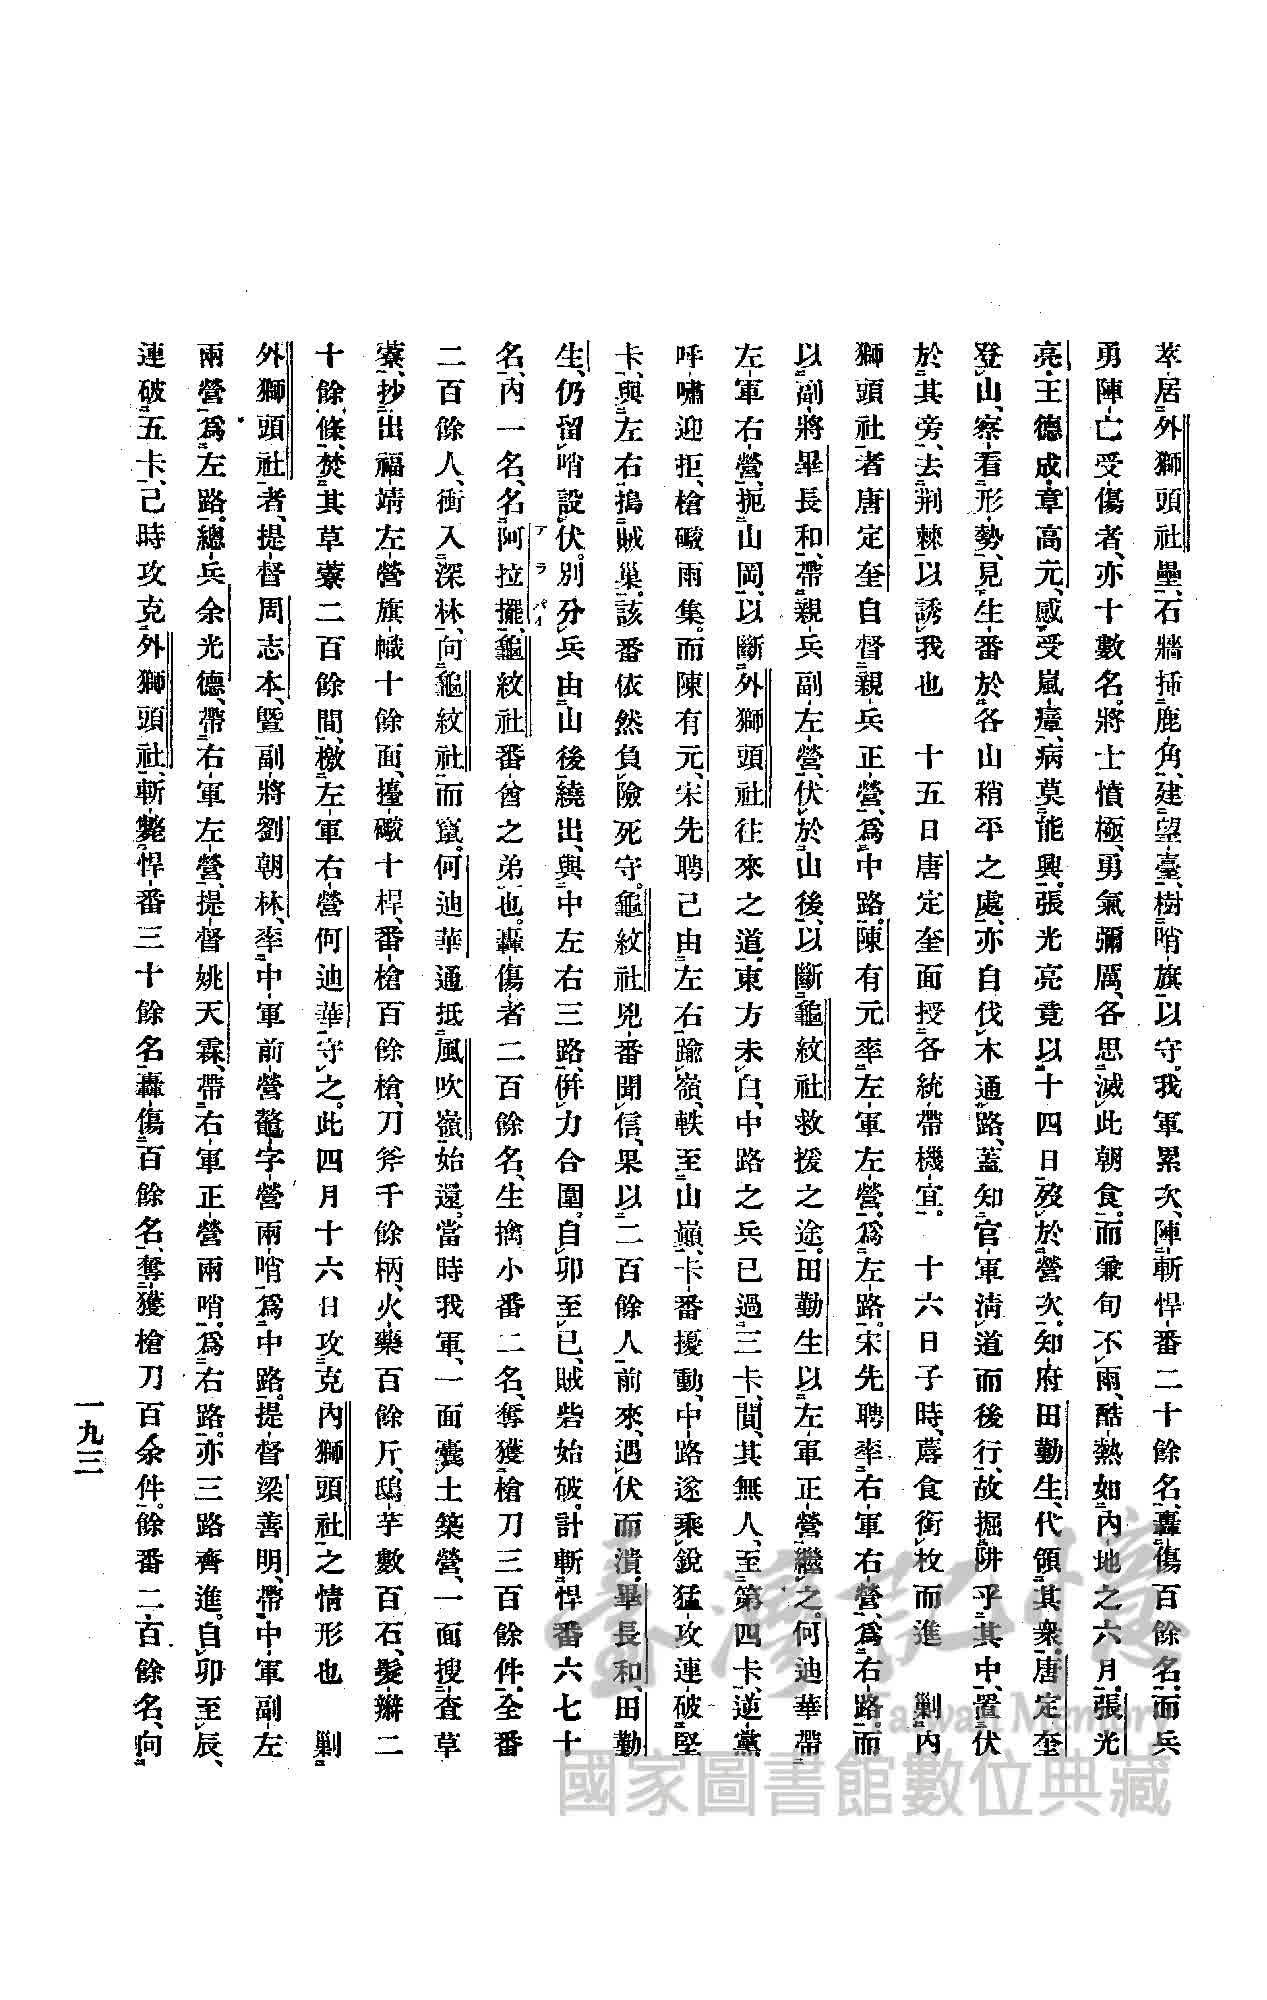 萃居外獅頭社壘、石牆插鹿角、建望臺、樹哨旗以守。我軍累次、陣斬悍番二十餘名、轟傷百餘名、而兵
勇陣亡受傷者、亦十數名。將士憤極、勇氣彌厲、各思滅此朝食。而兼旬不雨、酷熱如內地之六月。張光
亮、王德成、章高元、感受嵐瘴、病莫能興。張光亮竟以十四日歿於營次。知府田勤生、代領其衆。唐定奎
登山、察看形勢、見生番於各山稍平之處、亦自伐木通路、蓋知官軍清道而後行、故掘阱乎其中、置伏
於其旁、去荆棘以誘我也　十五日唐定奎面授各統帶機宜。　十六日子時、蓐食銜枚而進　剿內
獅頭社者唐定奎自督親兵正營、爲中路。陳有元率左軍左營。爲左路。宋先聘率右軍右營、爲右路。而
以副將畢長和、帶親兵副左營、伏於山後、以斷龜紋社救援之途。田勤生以左軍正營繼之。何迪華帶
左軍右營、扼山岡、以斷外獅頭社往來之道。東方未白、中路之兵已過三卡、闃其無人、至第四卡、逆黨
呼嘯迎拒、槍礮雨集。而陳有元、宋先聘己由左右踰嶺、軼至山巔、卡番擾動、中路遂乘銳猛攻連破堅
卡、與左右搗賊巢。該番依然負險死守。龜紋社兇番聞信、果以二百餘人前來、遇伏而潰。畢長和、田勤
生、仍留哨設伏。別分兵由山後繞出、與中左右三路、併力合圍。自卯至已、賊砦始破。計斬悍番六七十
名、內一名、名阿拉擺、龜紋社番酋之弟也。轟傷者二百餘名、生擒小番二名、奪獲槍刀三百餘件、全番
アラパイ
二百餘人、衝入深林、向龜紋社而竄。何迪華通抵風吹嶺始還。當時我軍、一面囊土築營、一面搜査草
藔、抄出福靖左營旗幟十餘面、擡礮十桿、番槍百餘槍、刀斧千餘柄、火藥百餘斤、鴟芋數百石、髮辮二
十餘條、焚其草藔二百餘間、檄左軍右營何迪華守之。此四月十六日攻克內獅頭社之情形也　剿
外獅頭社者、提督周志本、曁副將劉朝林、率中軍前營鼇字營兩哨、爲中路。提督梁善明、帶中軍副左
兩營、爲左路。總兵余光德、帶右軍左營、提督姚天霖、帶右軍正營兩哨。爲右路。亦三路齊進。自卯至辰、
連破五卡、己時攻克外獅頭社、斬斃悍番三十餘名、轟傷百餘名、奪獲槍刀百余件。餘番二百餘名、向
一九三
臺灣記憶
Taiwan Memory
國家圖書館數位典藏